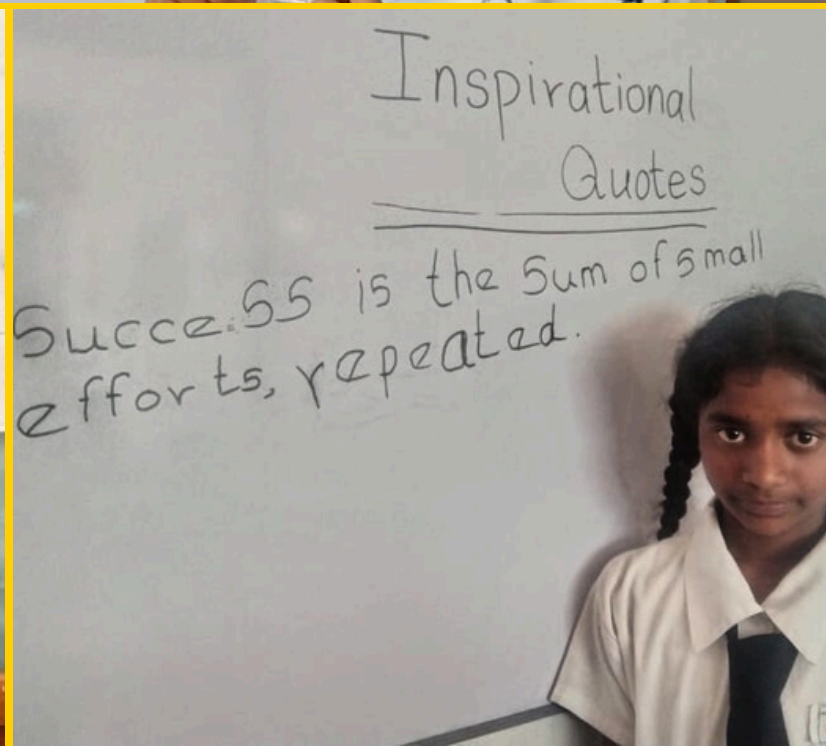 Inspirational
Quotes
Success is the Sum of Small
efforts, repeated.